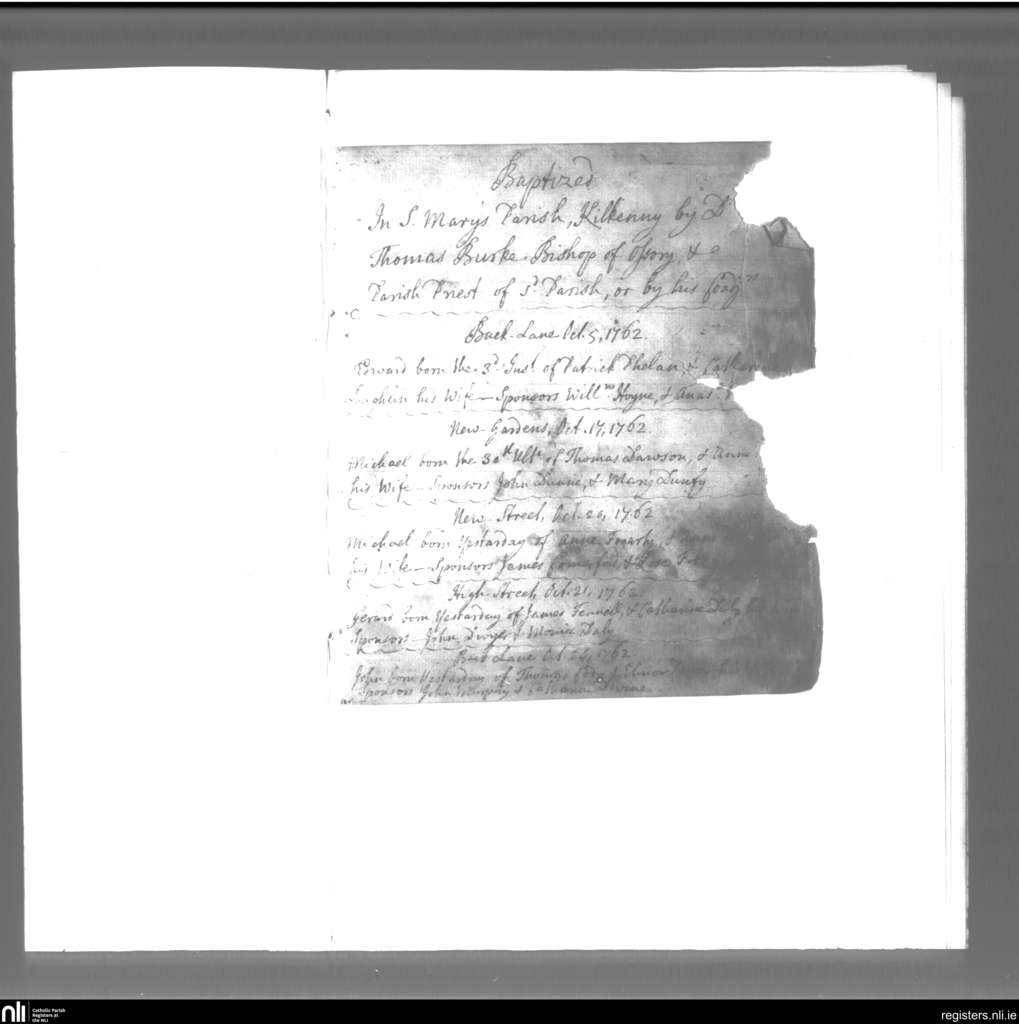 Baptized
In S. Mary's Parish, Kilkenny by D
Thomas Burke Bishop of Ossory &
Parish Priest of sd. Parish, or by his
Back-Lane Oct. 5, 1762
Edward born the 3d. Inst. of Patrick Phelan, & Catharine
his Wife — Sponsors Willm. Hoyne, & Anas.
New-Gardens, Oct. 17, 1762
Michael born the 30th Ult. of Thomas Lawson, & Anne
his Wife — Sponsors John Dunne, & Mary Dunfy
New-Street, Oct. 20, 1762
Michael born Yestarday of
his Wife — Sponsors James Comerford, &
High-Street, Oct. 21, 1762
Gerard born Yestarday of James Fennell, & Catharine Daly
Sponsors — John Dwyer, & Daly
Lane Oct. 1762
John born Yestarday of Thomas
Sponsors John Murphy & Catharine
nli
Catholic Parish
Registers at
the NLI
registers.nli.ie